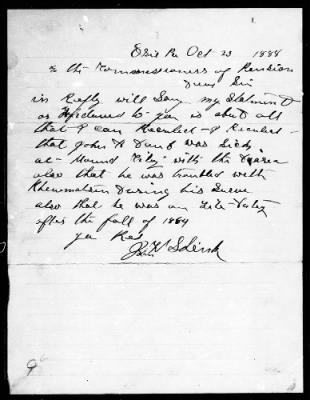 Erie Pa Oct 23 1888
to the Commissioners of Pension
Dear Sir
in Reply will Say my Statment
as to you is about all
that I can Recolect I Recolect
that John A was Sick
at Mound City with the
also that he was troubled with
Rheumatism During his
also that he was on Lite Duty
after the fall of 1864
yu Res
Schenk